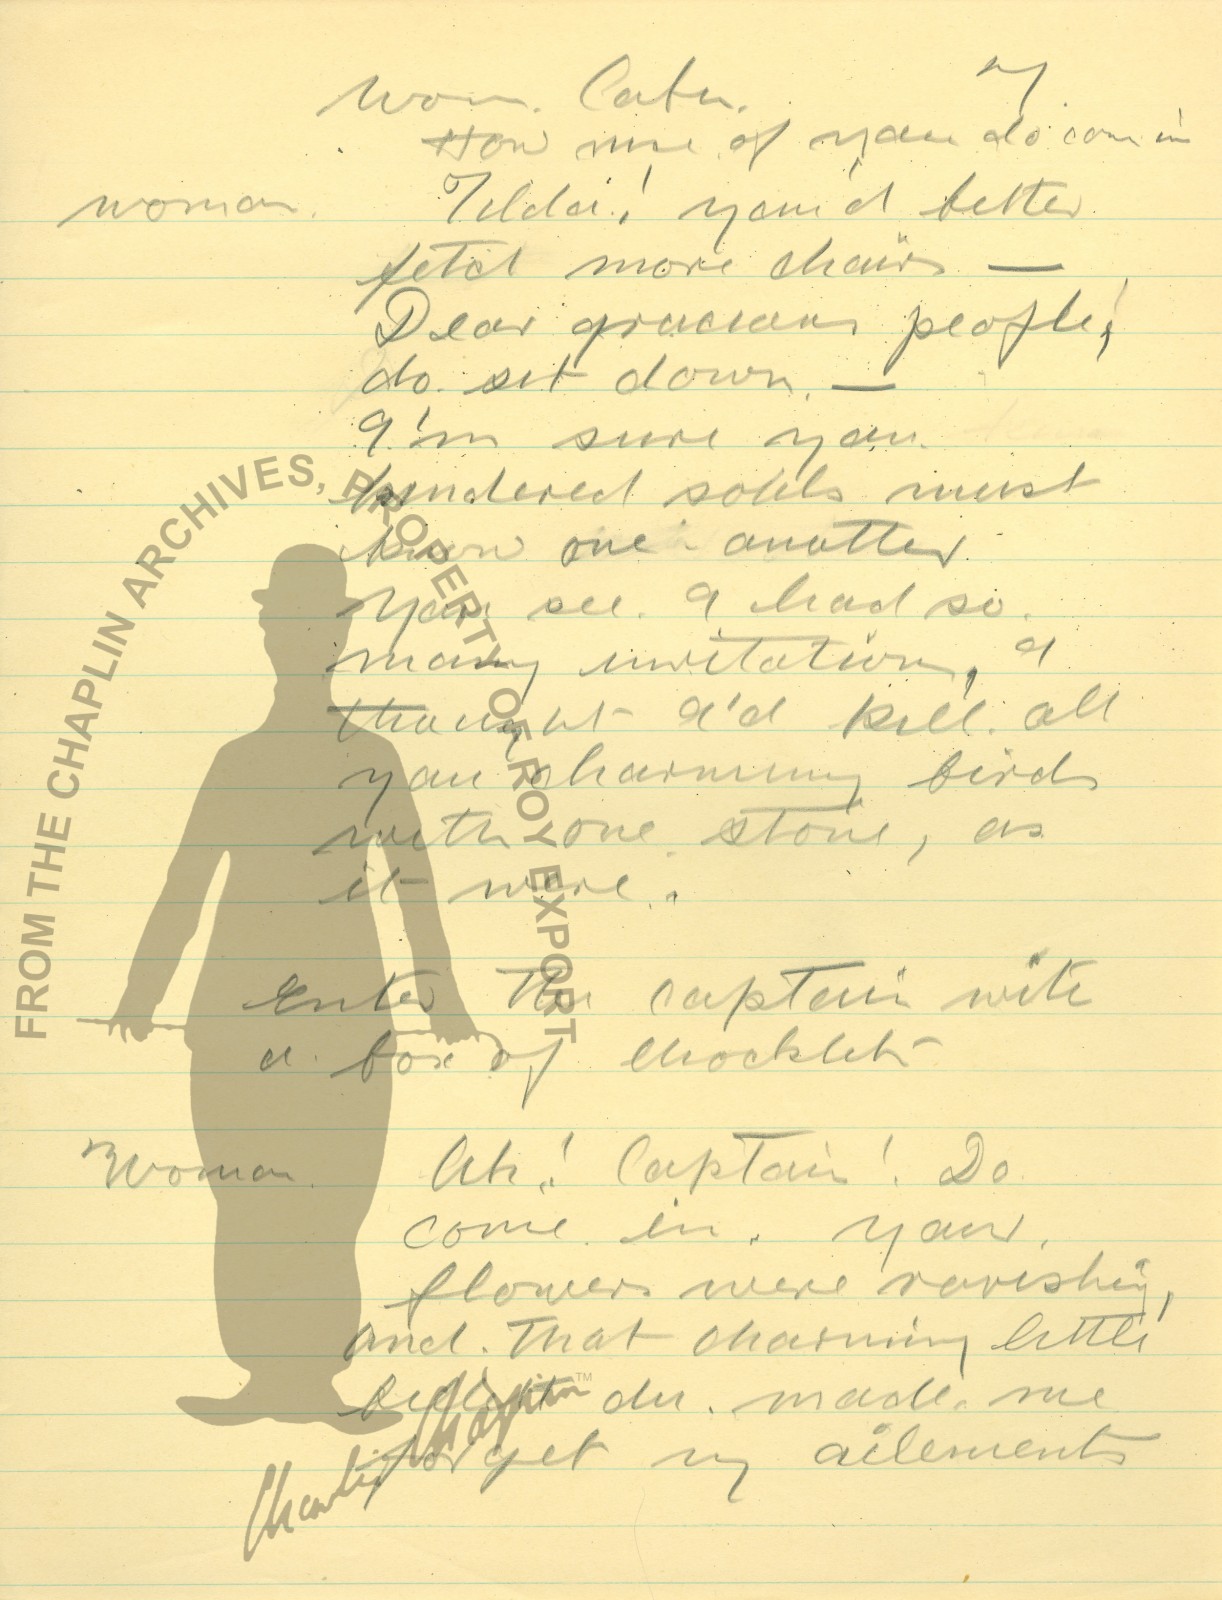 Wom.
How nise of you do come in
woman. Tilda! you'd better
fetch more chairs —
Dear gracious people!
do. sit down. —
I'm sure you
kindered souls must
know one another.
You see. I had so.
many invitation, I
thought I'd kill. all
you charming birds
with one stone, as
it were.
Enter The captain with
a box of chocklets
Woman. Ah! Captain! Do
come in. your
flowers were ravishing,
and. That charming little
du. made. me
forget my ailements
FROM THE CHAPLIN ARCHIVES, PROPERTY OF ROY EXPORT
Charlie Chaplin™